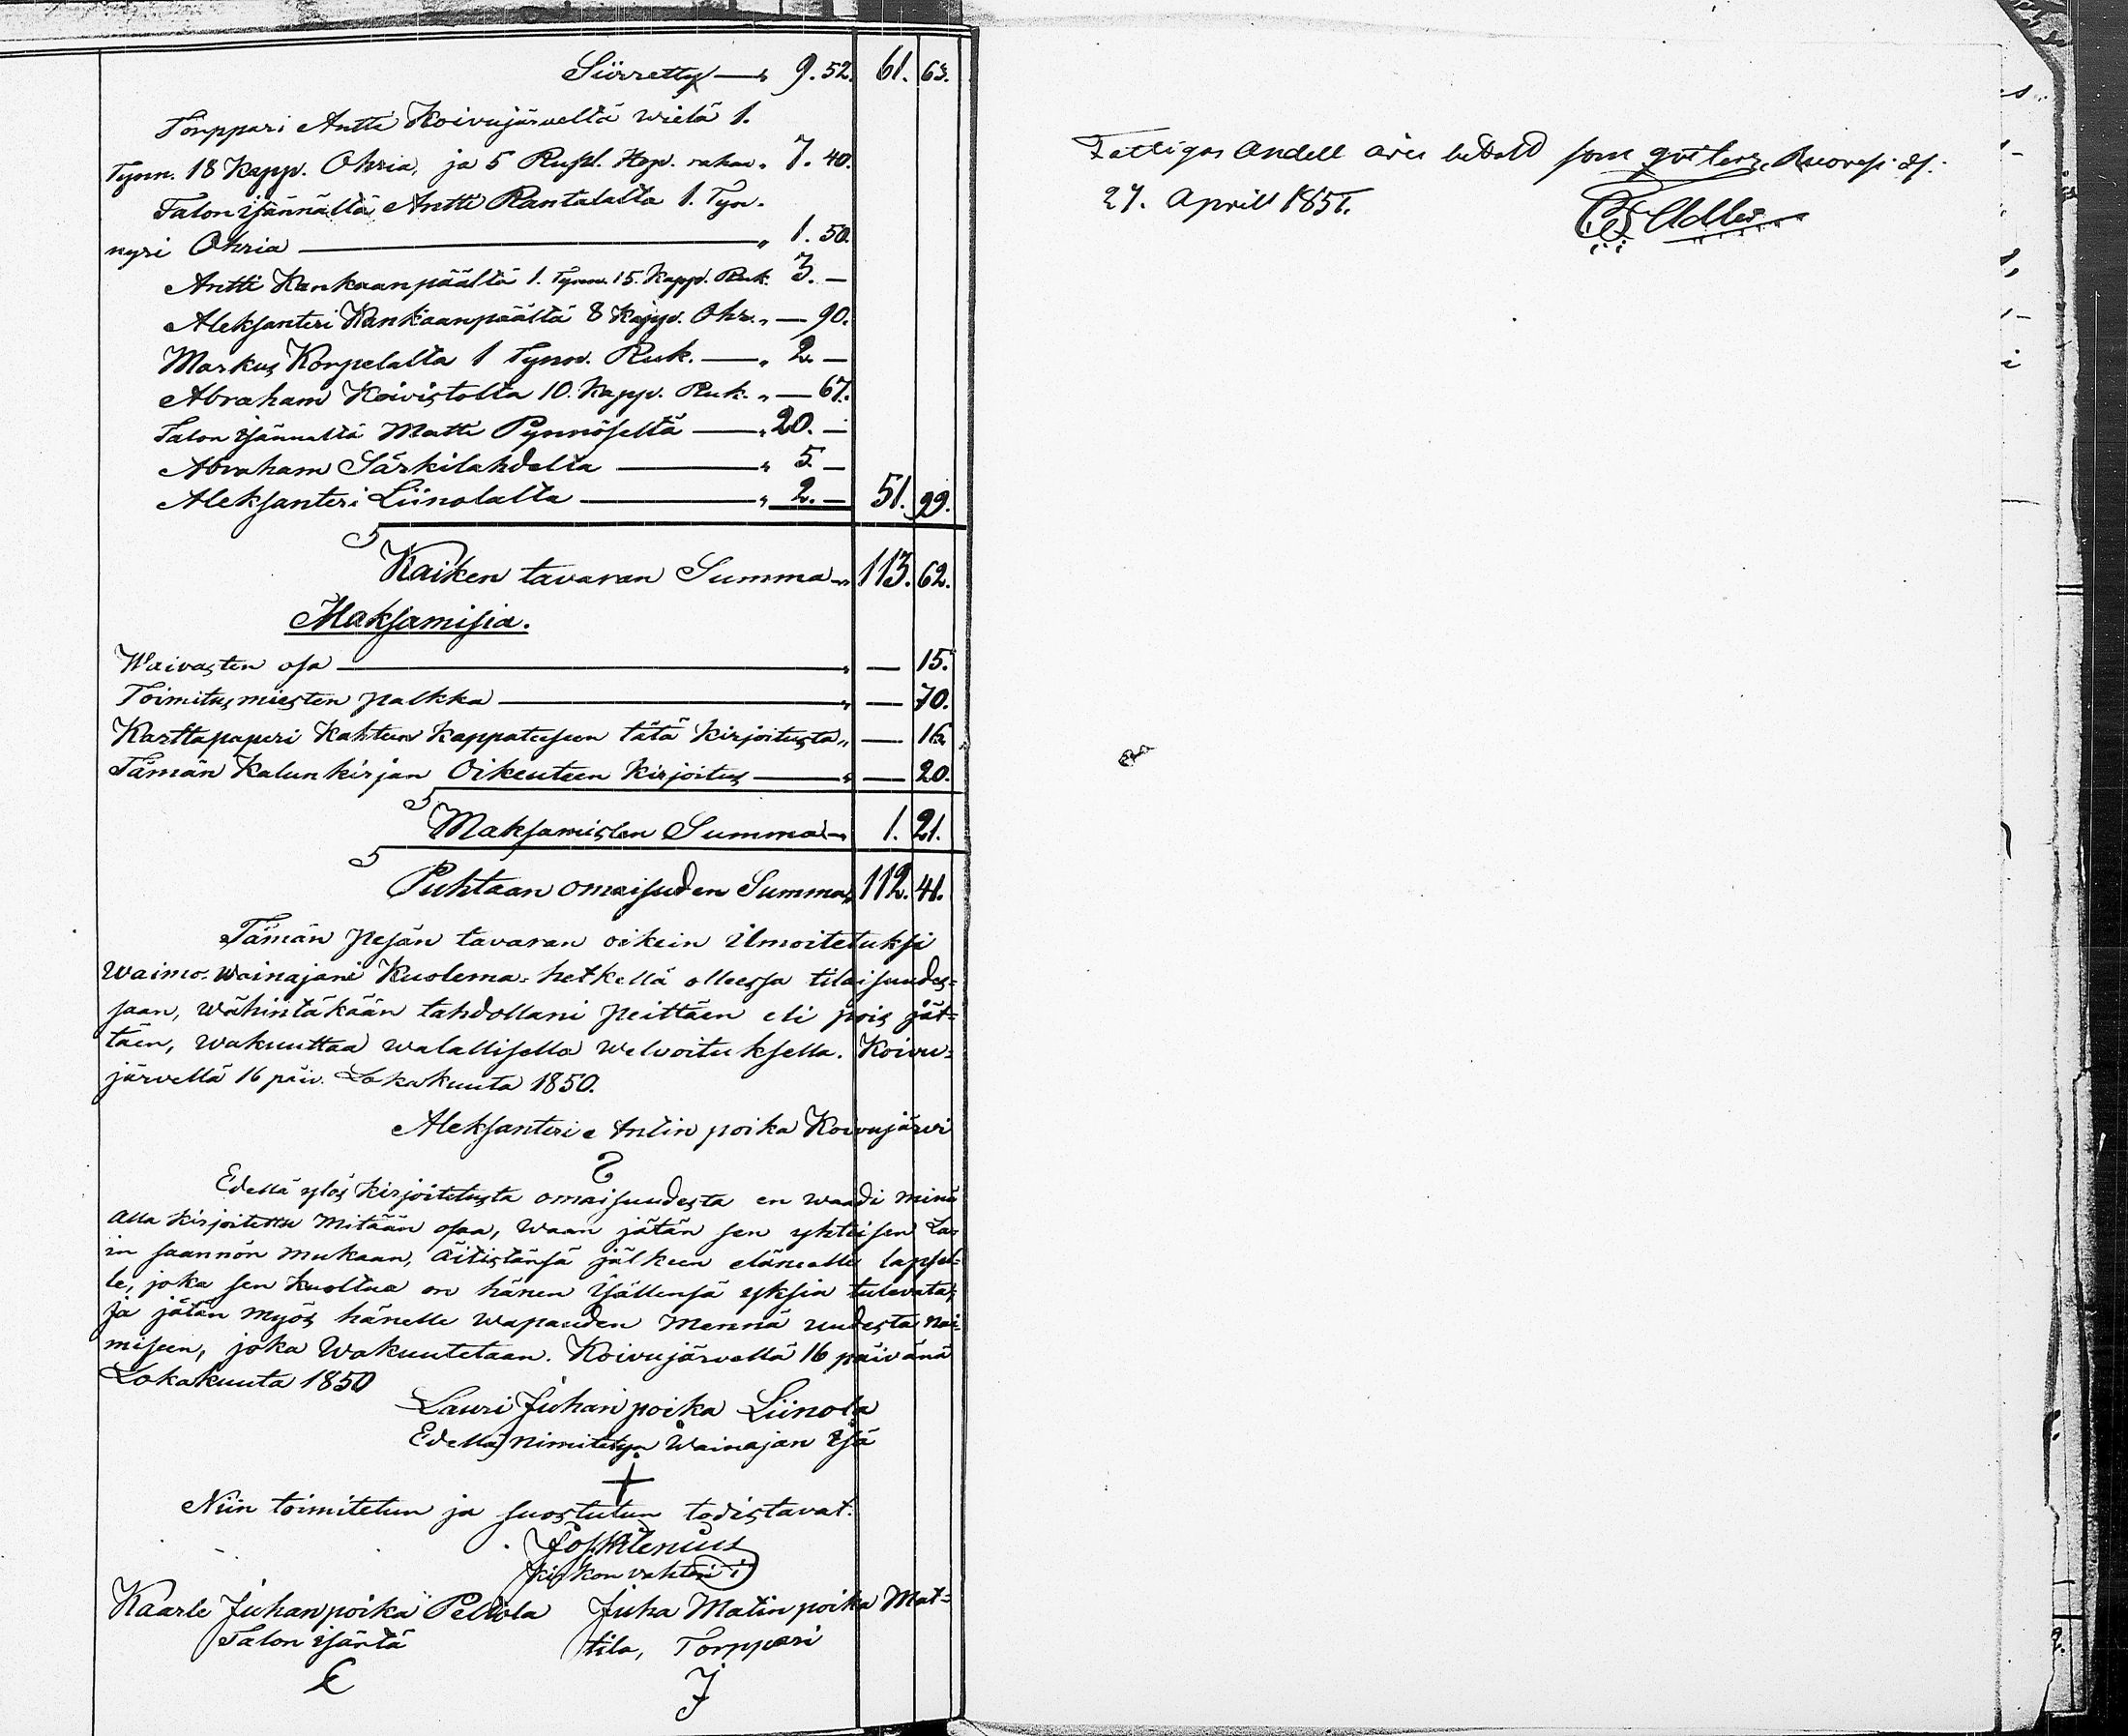 Siirretty — „ 9. 52. 61. 63.
Torppari Antti Koivujärveltä wielä 1.
Tynn. 18 Kapp. Ohria, ja 5 Rupl. Hop. rahaa „ 7. 40.
Talon isännältä Antti Rantalalta 1. Tyn-
nyri Ohria — „ 1. 50.
Antti Kankaanpäältä 1. Tynn. 15. Kapp. Ruk. 3. —
Aleksanteri Kankaanpäältä 8 Kapp. Ohr. „ — 90.
Markus Korpelalta 1 Tynn. Ruk. — „ 2. —
Abraham Koivistolta 10. Kapp. Ruk. „ — 67.
Talon isännältä Matti Pynnöseltä — „ 20. —
Abraham Särkilahdelta — „ 5. —
Aleksanteri Liinolalta — „ 2. — 51. 99.
Kaiken tavaran Summa „ 113. 62.
Maksamisia.
Waivasten osa — „ — 15.
Toimitusmiesten palkka — „ — 70.
Karttapaperi Kahteen Kappaleseen tätä Kirjoitusta „ — 16.
Tämän Kalunkirjan Oikeuteen Kirjoitus — „ — 20.
Maksamisten Summa „ 1. 21.
Puhtaan omaisuden Summa „ 112. 41.
Tämän pesän tavaran oikein ilmoitetuksi
waimo-wainajani Kuolema-hetkellä olleessa tilaisuudes-
saan, wähintäkään tahdollani peittäen eli pois jät-
täen, wakuuttaa walallisella welvoituksella. Koivu-
järvellä 16 päiv. Lokakuuta 1850.
Aleksanteri Antin poika Koivujärvi
Edellä ylös kirjoitetusta omaisuudesta en waadi minä
alla kirjoitettu mitään osaa, waan jätän sen yhteisen La-
in saannön mukaan, äitistänsä jälkeen elämälle lapsel-
le, joka sen kuoltua on hänen isällensä yksin tulevata;
ja jätän myös hänelle wapauden mennä uudesta nai-
miseen, joka wakuutetaan. Koivujärvellä 16 päivänä
Lokakuuta 1850
Lauri Juhan poika Liinola
Edellä nimitetyn Wainajan isä
Niin toimitetun ja suostutun todistavat:
Kirkon vahtari
Kaarle Juhanpoika Peltola Juha Matinpoika Mat-
Talon isäntä tila, Torppari
J
Fattigas andell äris betald som qvitteras Ruovesi df.
27. April 1851.
Adler